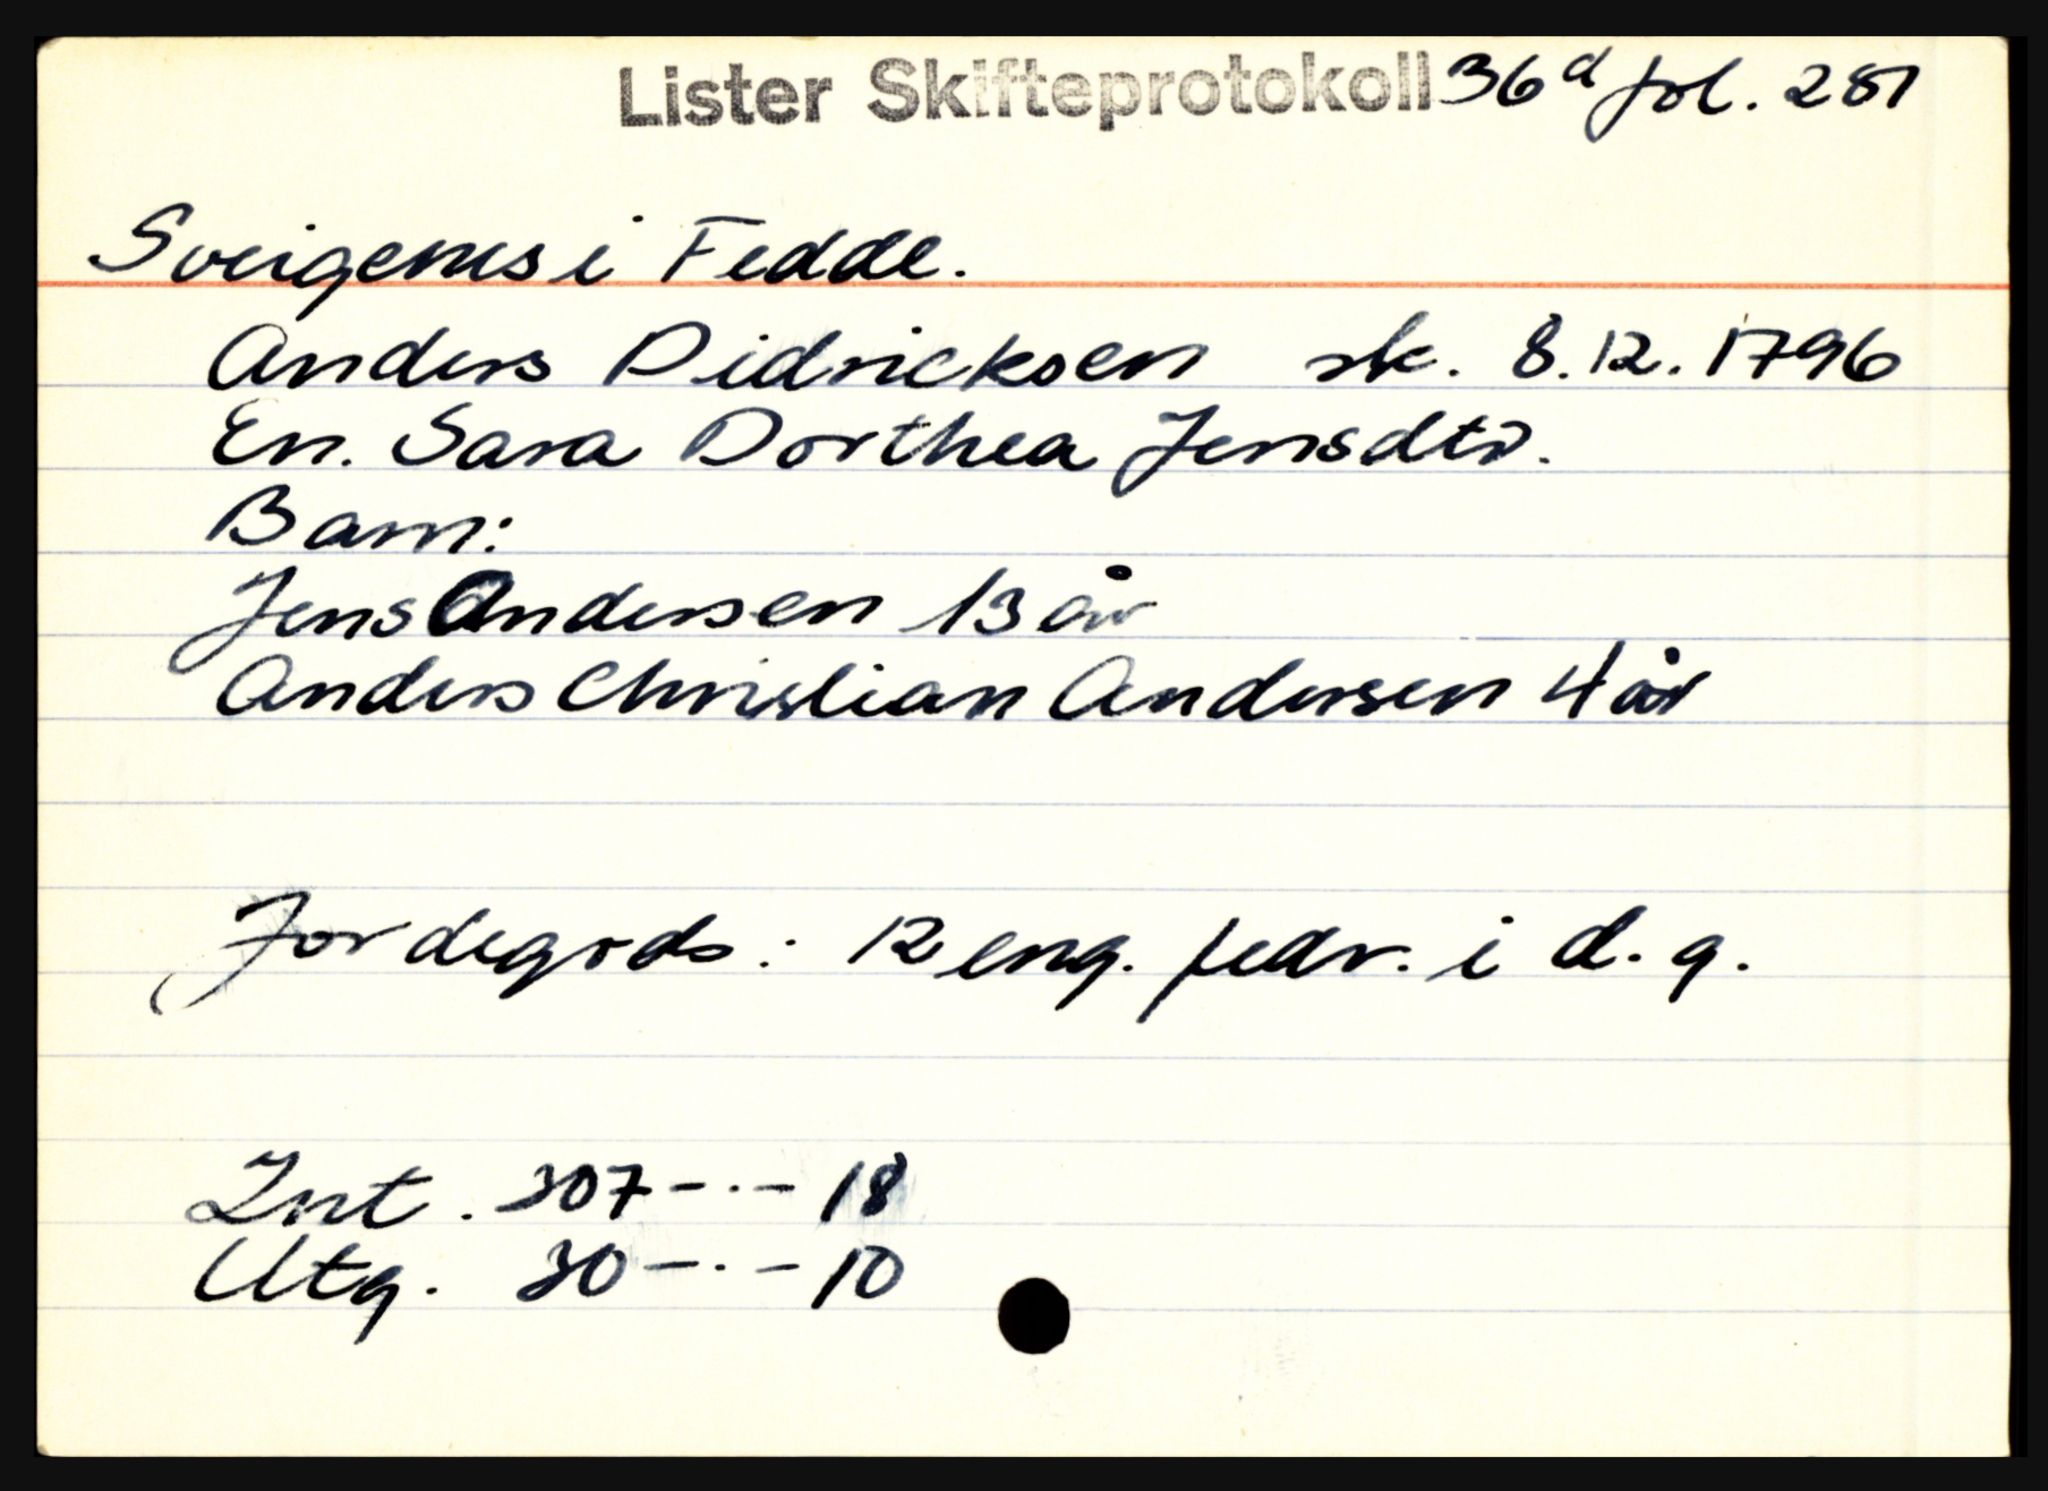 Lister Skifteprotokoll 36d fol. 281
Sveigenes i Fedde.
Anders Didricksen sk. 8.12.1796
En. Sara Dorthea Jensdtr.
Barn:
Jens Andersen 13 år
Anders Christian Andersen 4 år
Jordegods: 12 eng. pedr. i d. g.
Int. 307 - . - 18
Utg. 30 - . - 10